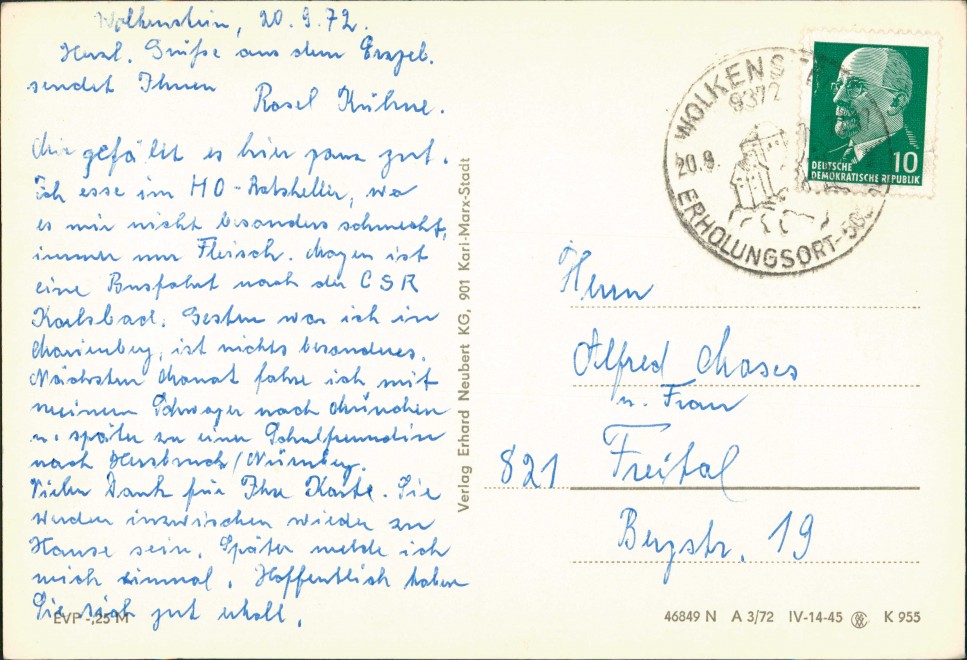 Wolkenstein, 20.9.72.
Herzl. Grüße aus dem Erzgeb.
sendet Ihnen
Rosel Kühne.
Mir gefällt es hier ganz gut.
Ich esse im HO-Ratskeller, wo
es mir nicht besonders schmeckt,
immer nur Fleisch. Morgen ist
eine Busfahrt nach der CSR
Karlsbad. Gestern war ich in
Marienberg, ist nichts besonderes.
Nächsten Monat fahre ich mit
meinem Schwager nach München
u. später zu einer Schulfreundin
nach Hersbruck/Nürnberg.
Vielen Dank für Ihre Karte. Sie
werden inzwischen wieder zu
Hause sein. Später melde ich
mich einmal. Hoffentlich haben
Sie sich gut erholt.
EVP -,25 M
Verlag Erhard Neubert KG, 901 Karl-Marx-Stadt
WOLKENST
9372
20.9.
ERHOLUNGSORT-500
10
DEUTSCHE
DEMOKRATISCHE REPUBLIK
Herrn
Alfred Moses
u. Frau
821 Freital
Bergstr. 19
46849 N A 3/72 IV-14-45 K 955